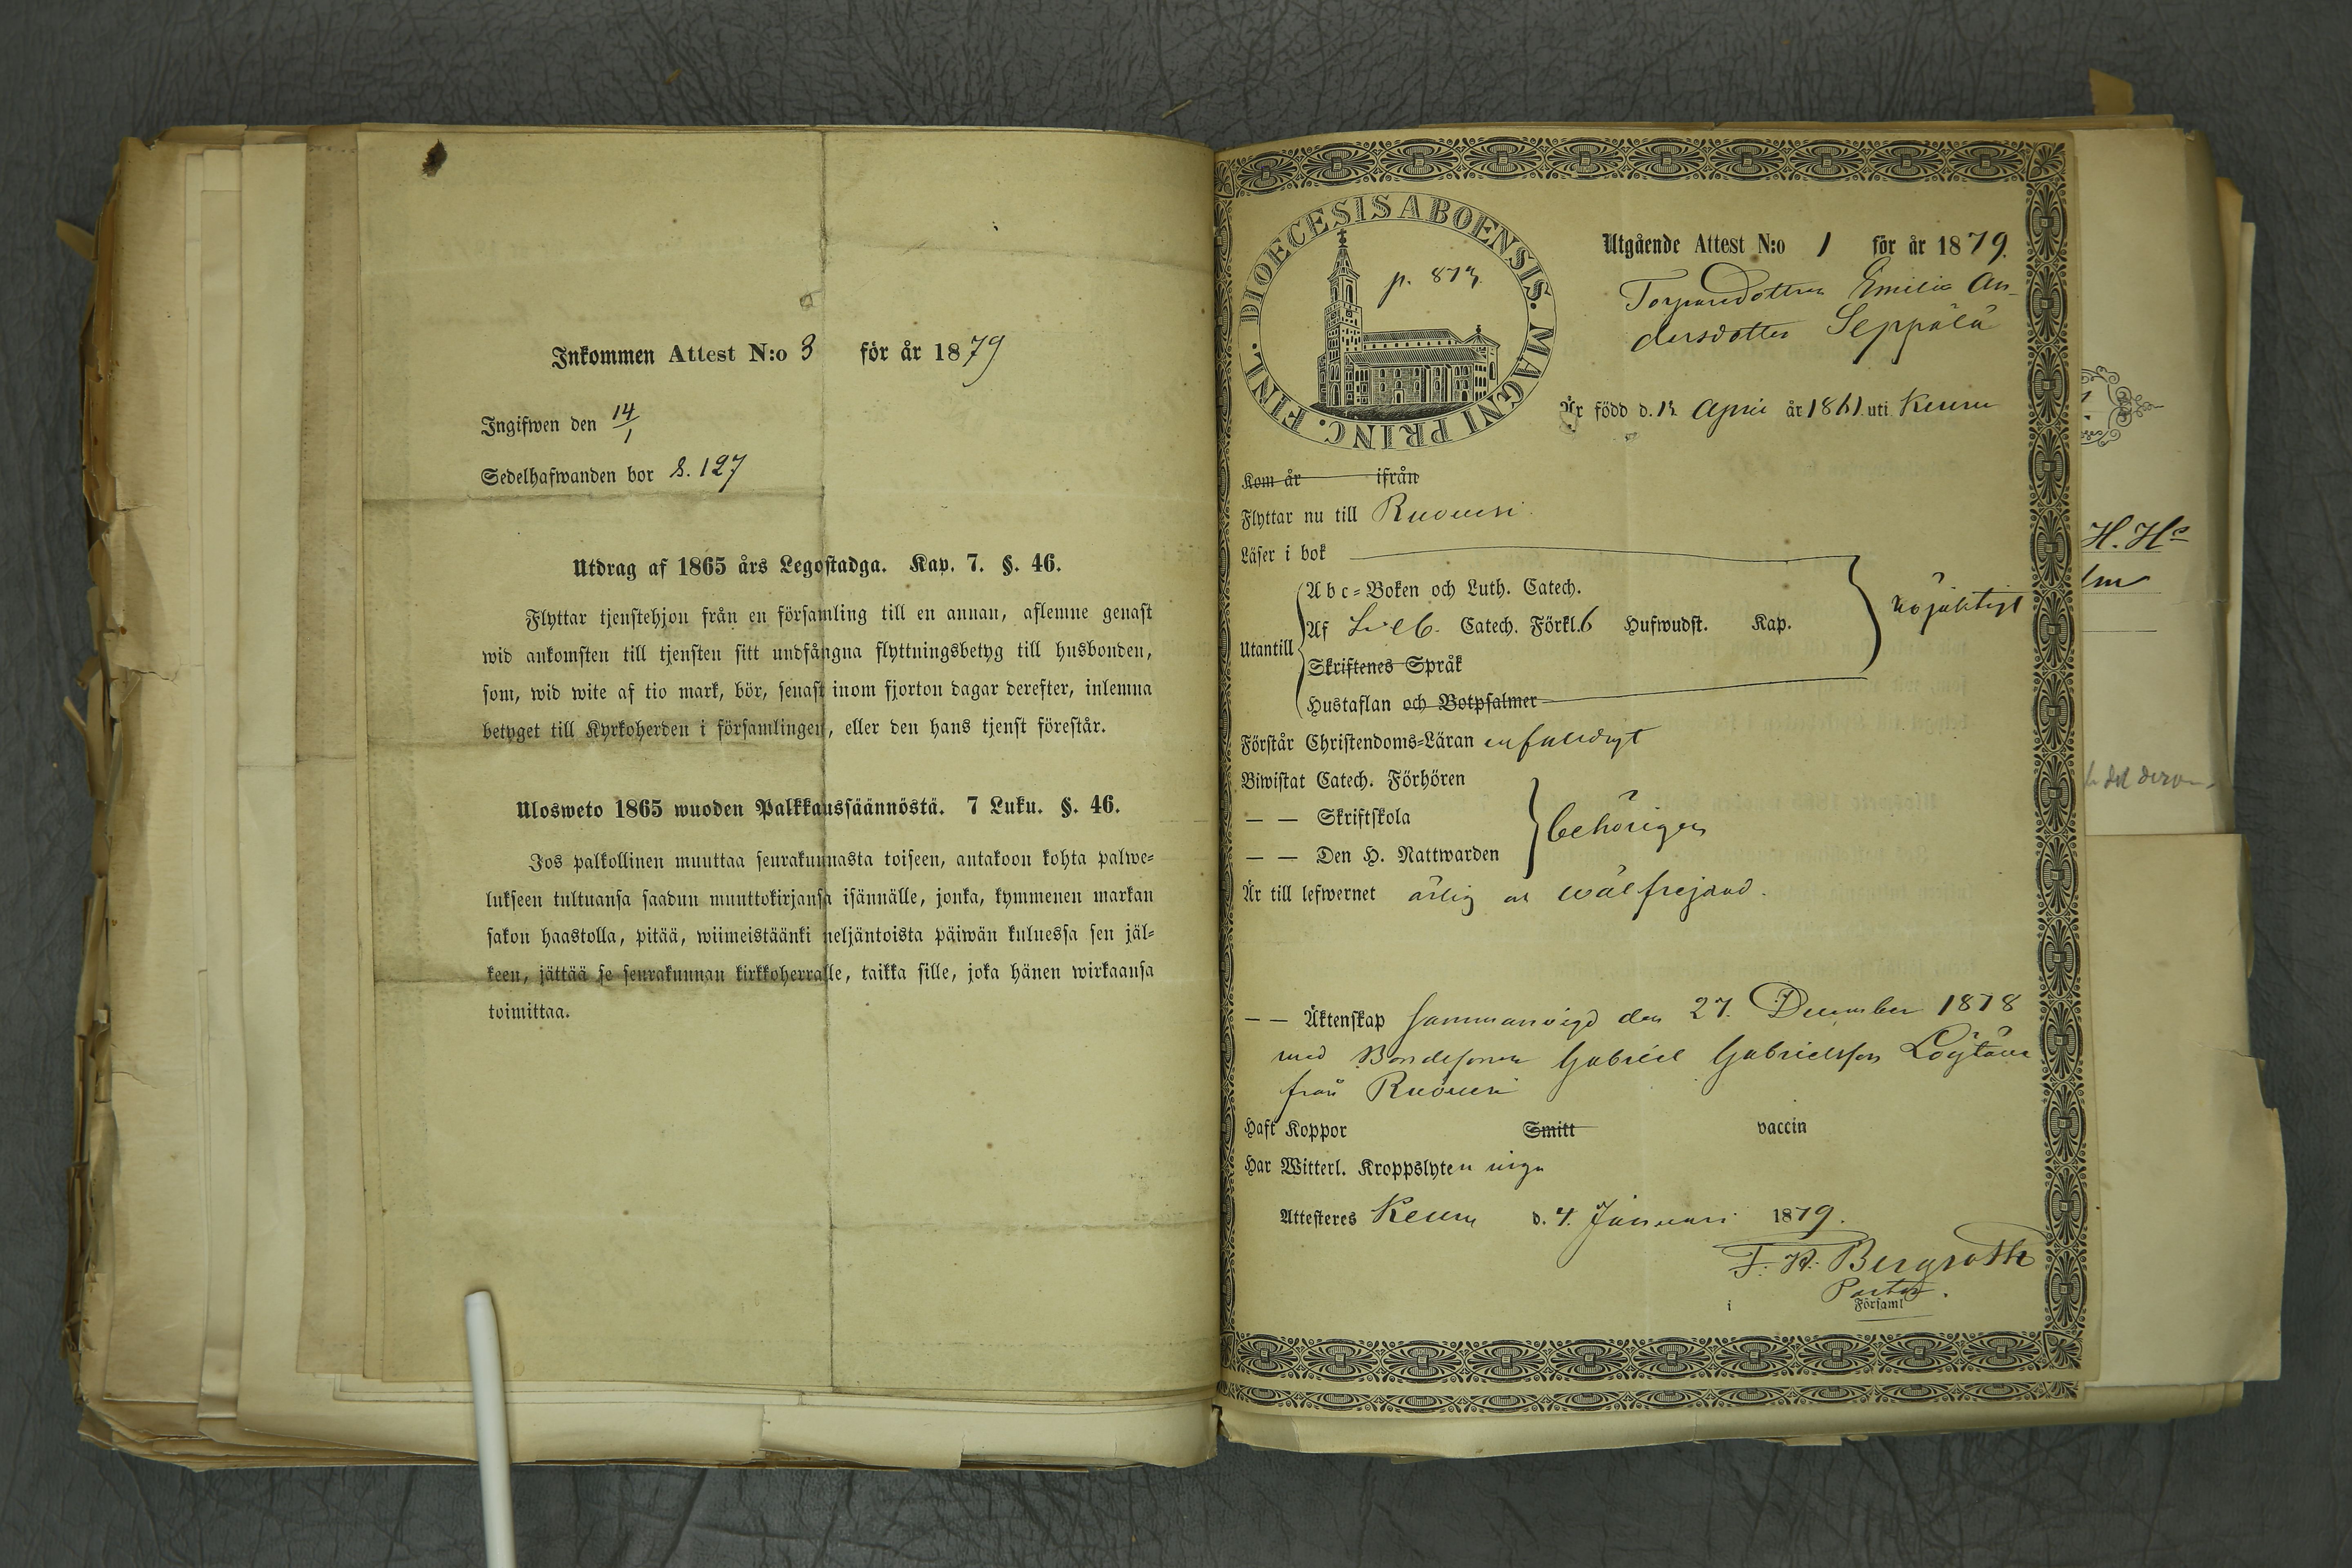 Inkommen Attest N:o 3 för år 1879
Ingifwen den 14/1
Sedelhafwanden bor S. 127
Utdrag af 1865 års Legostadga. Kap. 7. §. 46.
Flyttar tjenstehjon från en församling till en annan, aflemne genast
wid ankomsten till tjensten sitt undfångna flyttningsbetyg till husbonden,
som, wid wite af tio mark, bör, senast inom fjorton dagar derefter, inlemna
betyget till Kyrkoherden i församlingen, eller den hans tjenst förestår.
Ulosweto 1865 wuoden Palkkaussäännöstä. 7 Luku. §. 46.
Jos palkollinen muuttaa seurakunnasta toiseen, antakoon kohta palwe=
lukseen tultuansa saadun muuttokirjansa isännälle, jonka, kymmenen markan
sakon haastolla, pitää, wiimeistäänki neljäntoista päiwän kuluessa sen jäl=
keen, jättää se seurakunnan kirkkoherralle, taikka sille, joka hänen wirkaansa
toimittaa.
DIOECESIS ABOENSIS. MAGNI PRINC. FINL.
p. 873
Utgående Attest N:o 1 för år 1879.
Torparedottren Emilia An-
dersdotter Seppälä
Är född d. 12 April år 1861 uti Keuru
Kom år ifrån
Flyttar nu till Ruovesi
Läser i bok
Abc=Boken och Luth. Catech.
Utantill Af Catech. Förkl. 6 Hufwudst. Kap. nöjaktigt
Skriftenes Språk
Hustaflan och Botpsalmer
Förstår Christendoms=Läran enfaldigt
Biwistat Catech. Förhören
— — Skriftskola behörigen
— — Den H. Nattwarden
Är till lefwernet ärlig och wälfrejdad.
— — Äktenskap sammanvigd den 27. December 1878
med Bondesonen Gabriel Gabrielsson Löytäne
från Ruovesi
Haft Koppor Smitt vaccin
Har Witterl. Kroppslyten inga
Attesteres Keuru d. 4. Januari 1879.
F. H. Bergroth
Pastor.
i Församl
H. Hs